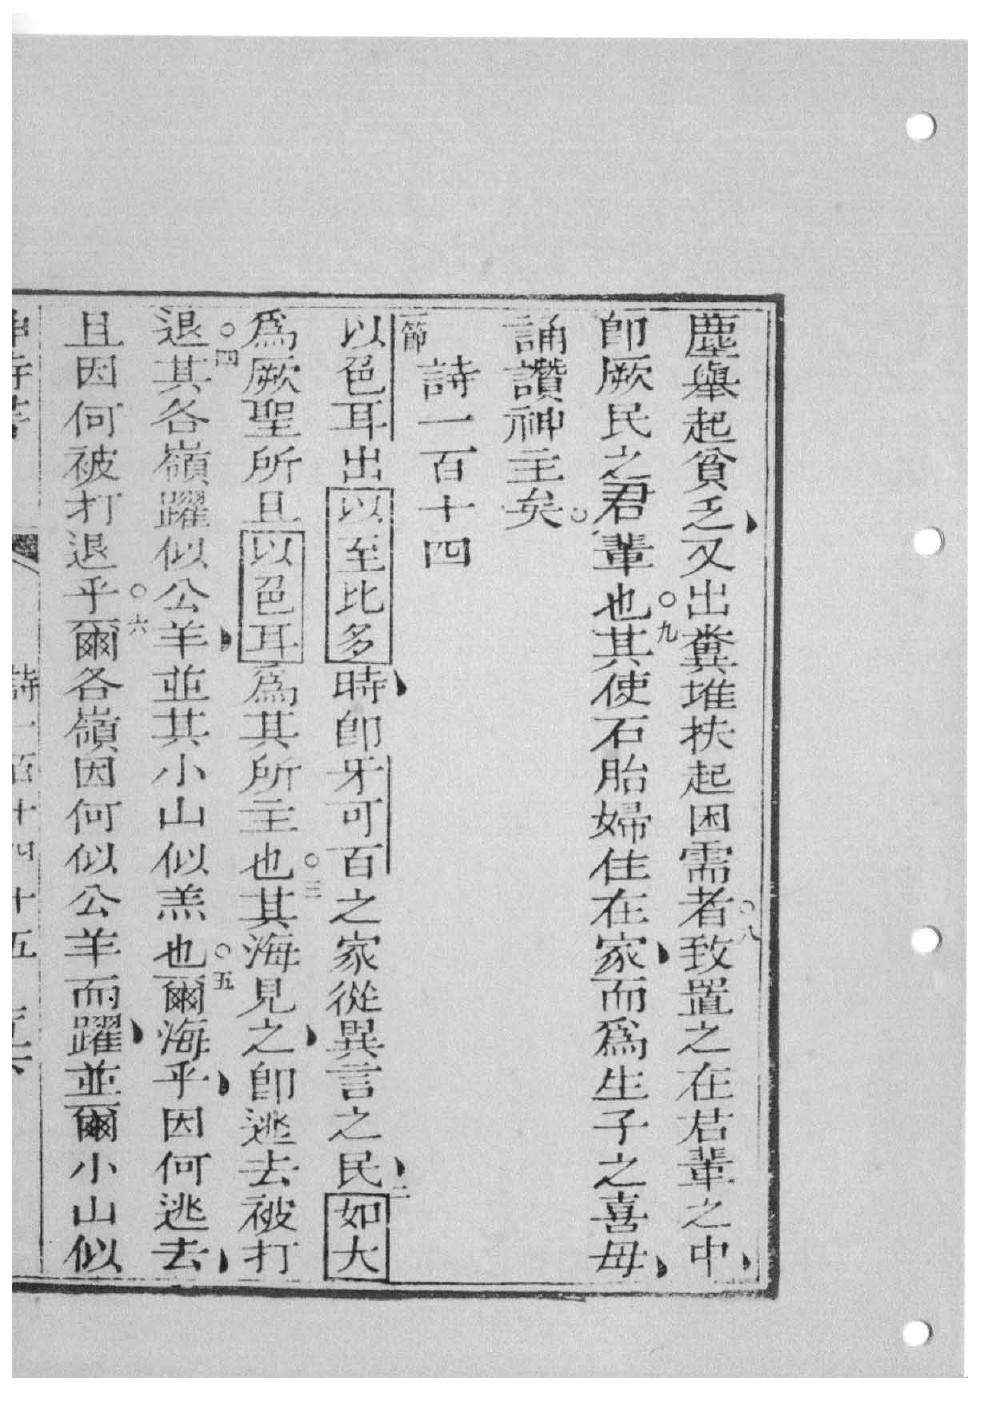 塵舉起貧乏又出糞堆扶起困需者○八致置之在君輩之中
即厥民之君輩也○九其使石胎婦住在家而爲生子之喜母
誦讚神主矣○
詩一百十四
一節以色耳出以至比多時即牙可百之家從異言之民二如大
爲厥聖所且以色耳爲其所主也○三其海見之即逃去被打
退○四其各嶺躍似公羊並其小山似羔也○五爾海乎因何逃去
且因何被打退乎○六爾各嶺因何似公羊而躍並爾小山似
詩一百十四十五